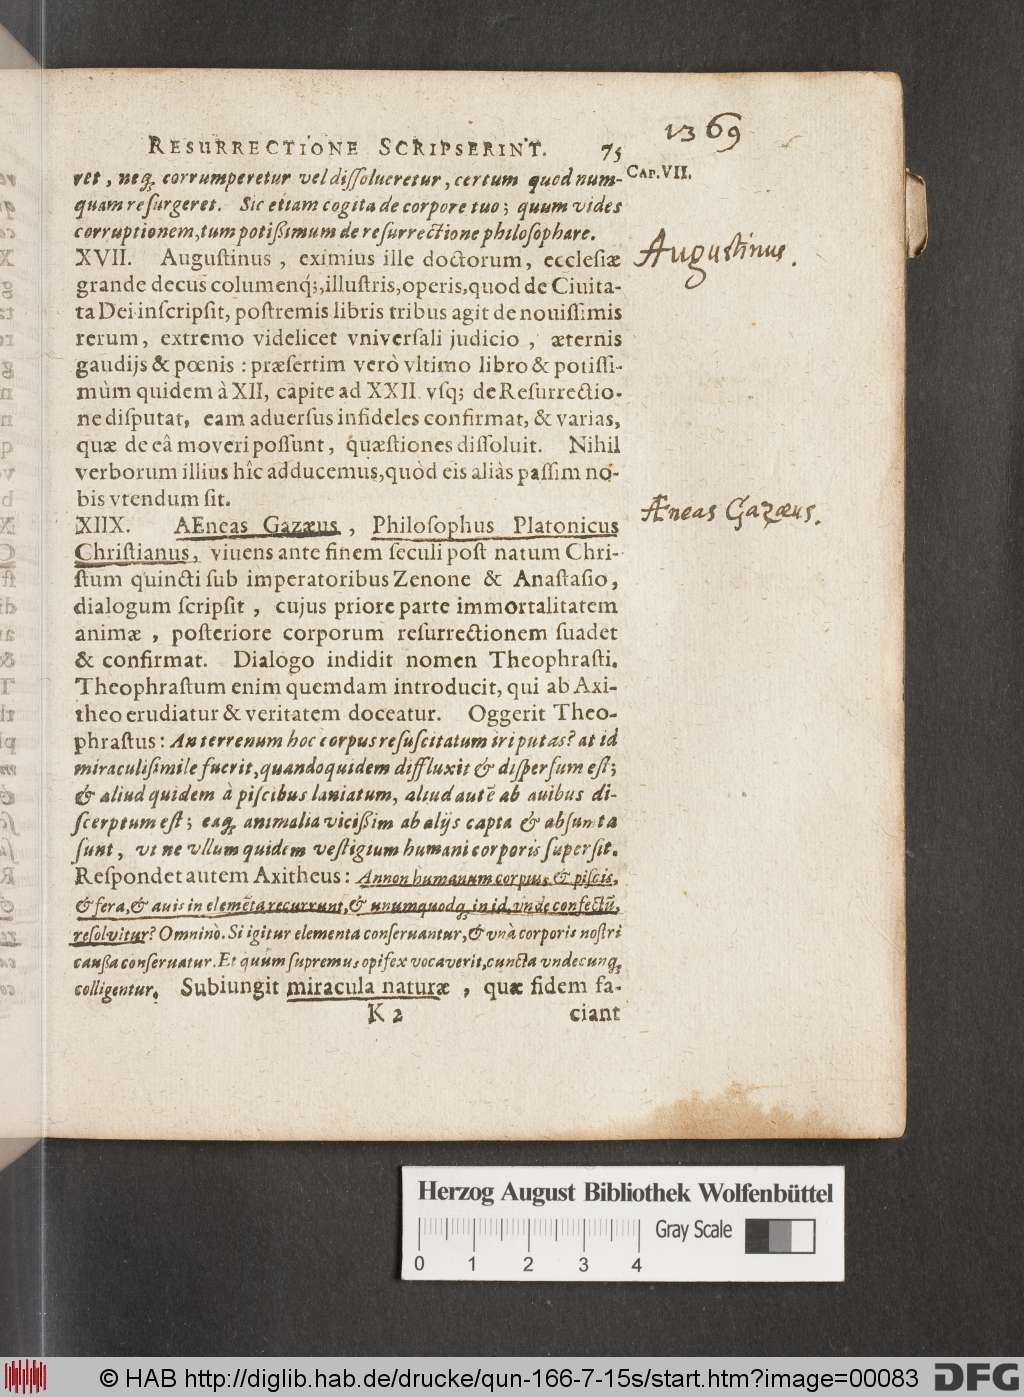 1369
RESURRECTIONE SCRIPSERINT. 75
ret, neq; corrumperetur vel dissolueretur, certum quod num- CAP. VII.
quam resurgeret. Sic etiam cogita de corpore tuo; quum vides
corruptionem, tum potißimum de resurrectione philosophare.
XVII. Augustinus, eximius ille doctorum, ecclesiæ
Augustinus.
grande decus columenq;, illustris, operis, quod de Ciuita-
ta Dei inscripsit, postremis libris tribus agit de nouissimis
rerum, extremo videlicet vniversali judicio, æternis
gaudijs & pœnis: præsertim verò vltimo libro & potissi-
mùm quidem à XII, capite ad XXII vsq; de Resurrectio-
ne disputat, eam aduersus infideles confirmat, & varias,
quæ de eâ moveri possunt, quæstiones dissoluit. Nihil
verborum illius hîc adducemus, quòd eis aliàs passim no-
bis vtendum sit.
XIIX. AEneas Gazæus, Philosophus Platonicus
Æneas Gazæus.
Christianus, viuens ante finem seculi post natum Chri-
stum quincti sub imperatoribus Zenone & Anastasio,
dialogum scripsit, cujus priore parte immortalitatem
animæ, posteriore corporum resurrectionem suadet
& confirmat. Dialogo indidit nomen Theophrasti.
Theophrastum enim quemdam introducit, qui ab Axi-
theo erudiatur & veritatem doceatur. Oggerit Theo-
phrastus: An terrenum hoc corpus resuscitatum iri putas? at id
miraculi simile fuerit, quandoquidem diffluxit & dispersum est;
& aliud quidem à piscibus laniatum, aliud autē ab auibus di-
scerptum est; eaq; animalia vicißim ab alijs capta & absumta
sunt, vt ne vllum quidem vestigium humani corporis supersit.
Respondet autem Axitheus: Annon humanum corpus & piscis,
& fera, & auis in elemēta recurrunt, & unumquodq; in id, vnde confectū,
resolvitur? Omninò. Si igitur elementa conseruantur, & vnà corporis nostri
caußa conseruatur. Et quum supremus opifex vocaverit, cuncta vndecunq;
colligentur. Subiungit miracula naturæ, quæ fidem fa-
K 2 ciant
Herzog August Bibliothek Wolfenbüttel
Gray Scale
0 1 2 3 4
© HAB http://diglib.hab.de/drucke/qun-166-7-15s/start.htm?image=00083 DFG